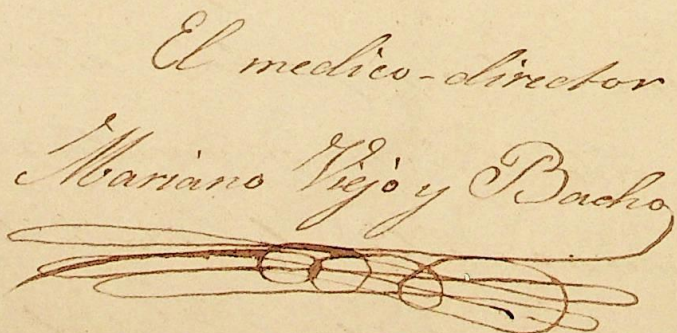 El medico-director
Mariano Viejo y Bacho